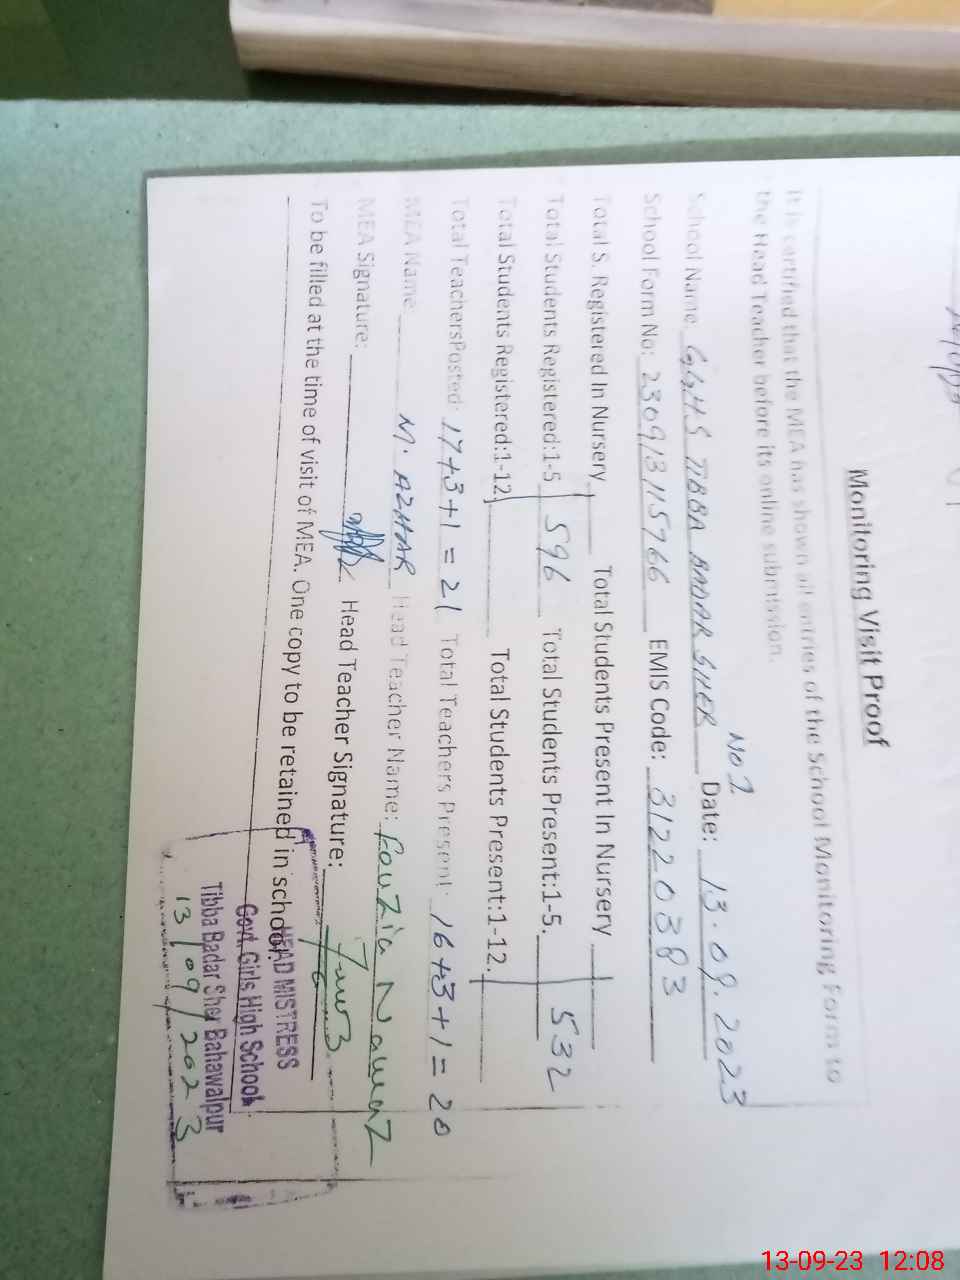 Monitoring Visit Proof
It is certified that the MEA has shown all entries of the School Monitoring Form to
the Head Teacher before its online submission.
School Name: GGHS TIBBA BADAR SHER No 1 Date: 13.09.2023
School Form No: 230913115766 EMIS Code: 31220383
Total S. Registered In Nursery Total Students Present In Nursery
Total Students Registered:1-5 596 Total Students Present:1-5. 532
Total Students Registered:1-12 Total Students Present:1-12.
Total TeachersPosted: 17+3+1 = 21 Total Teachers Present: 16+3+1 = 20
MEA Name: M. AZHAR Head Teacher Name: Fouzia Nawaz
MEA Signature: Head Teacher Signature:
To be filled at the time of visit of MEA. One copy to be retained in school.
HEAD MISTRESS
Govt. Girls High School
Tibba Badar Sher Bahawalpur
13/09/2023
13-09-23 12:08